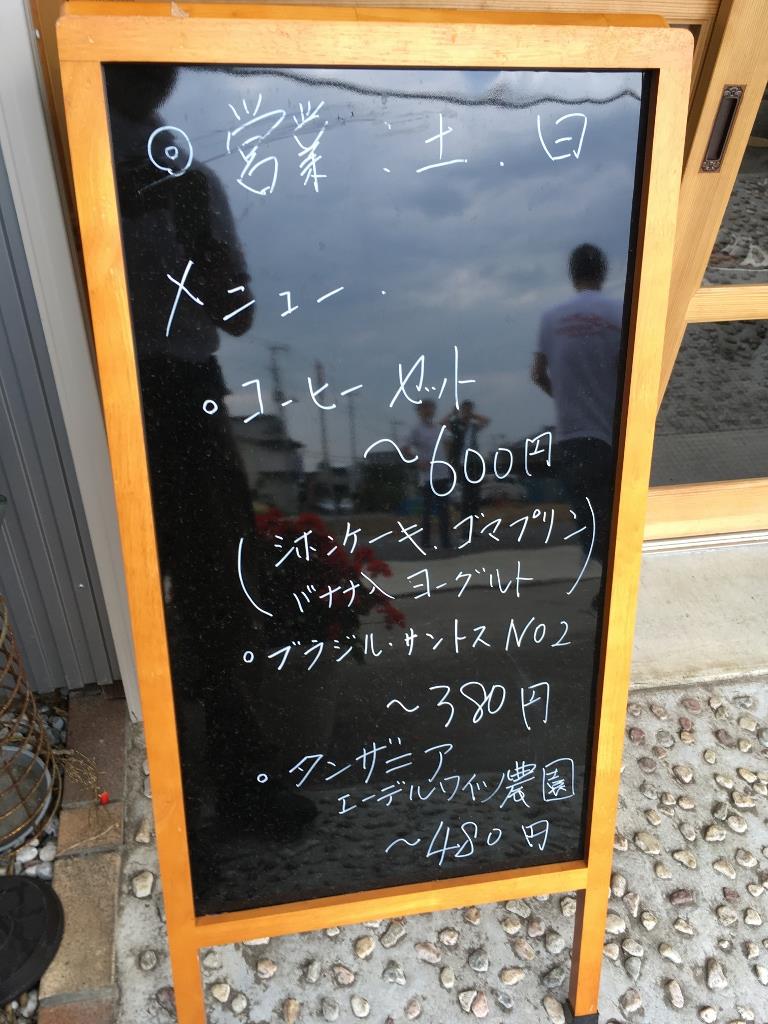 ◎営業:土.日
メニュー.
○コーヒーセット
～600円
(シホンケーキ、ゴマプリン
バナナ入ヨーグルト)
○ブラジル・サントスNO2
～380円
○タンザニア
エーデルワイツ農園
～480円